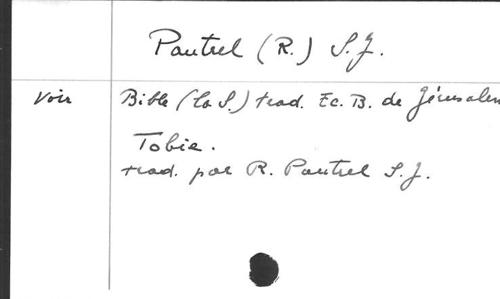 Pautrel (R.) S.J.
Voir Bible (la S.) trad. Ec. B. de Jérusalem
Tobie.
trad. par R. Pautrel S.J.